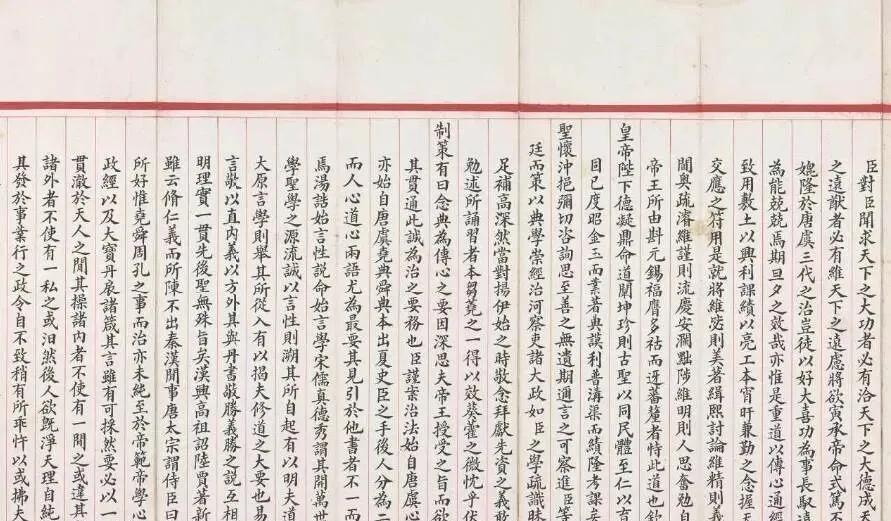 臣對臣聞求天下之大功者必有洽天下之大德成天
之遠猷者必有維天下之遠慮將欲寅承帝命式篤不
媲隆於唐虞三代之治豈徒以好大喜功為事長馭遠
為能兢兢焉期旦夕之效哉亦惟是重道以傳心通經
致用敷土以興利課績以亮工本宵旰兼勤之念握天
交應之符用是就將維宓則美著緝熙討論維精則義
閫奥疏瀹維謹則流慶安瀾黜陟維明則人思奮勉自
帝王所由斟元錫福膺多祜而迓蕃釐者恃此道也欽
皇帝陛下德凝鼎命道闡坤珍則古聖以同民體至仁以育
固已度昭金玉而業著典謨利普溝渠而績隆考課矣
聖懷沖挹彌切咨詢思至善之無遺期邇言之可察進臣等
廷而策以典學崇經治河察吏諸大政如臣之學疏識昧
足補高深然當對揚伊始之時敬念拜獻先資之義敢
勉述所誦習者本芻蕘之一得以效葵藿之微忱乎伏
制策有曰念典為傳心之要因深思夫帝王授受之旨而欲
其貫通此誠為治之要務也臣謹案治法始自唐虞心
亦始自唐虞堯典與舜典本出夏史臣之手後人分為二
而人心道心兩語尤為最要其見引於他書者不一而
焉湯誥始言性說命始言學宋儒真德秀謂其開萬世
學聖學之源流誠以言性則溯其所自起有以明夫道
大原言學則舉其所從入有以揭夫修道之大要也易
言敬以直內義以方外其與丹書敬勝義勝之說互相
明理實一貫先後聖無殊旨矣漢興高祖詔陸賈著新
雖云脩仁義而所陳不出秦漢間事唐太宗謂侍臣曰
所好惟堯舜周孔之事而治亦未純至於帝範帝學心
政經以及大寶丹扆諸箴其言雖有可採然要必以一
貫澈於天人之閒其操諸內者不使有一閒之或違其
諸外者不使有一私之或汩然後人欲旣淨天理自純
其發於事業行之政令自不致稍有所乖忤以或拂夫